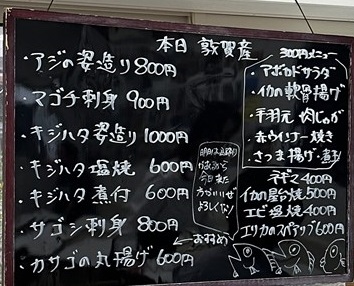 本日 敦賀産
・アジの姿造り 800円
・マゴチ刺身 900円
・キジハタ姿造り 1000円
・キジハタ塩焼 600円
・キジハタ煮付 600円
・サゴシ刺身 800円
・カサゴの丸揚げ 600円
←おすすめ
よろしくな!
300円メニュー
・アボカドサラダ
・イカの軟骨揚げ
・手羽元 肉じゃが
・赤ウインナー焼き
・さつま揚げ・
ネギマ 400円
イカの屋台焼 500円
エビ塩焼 400円
エリカのスペアリブ 600円